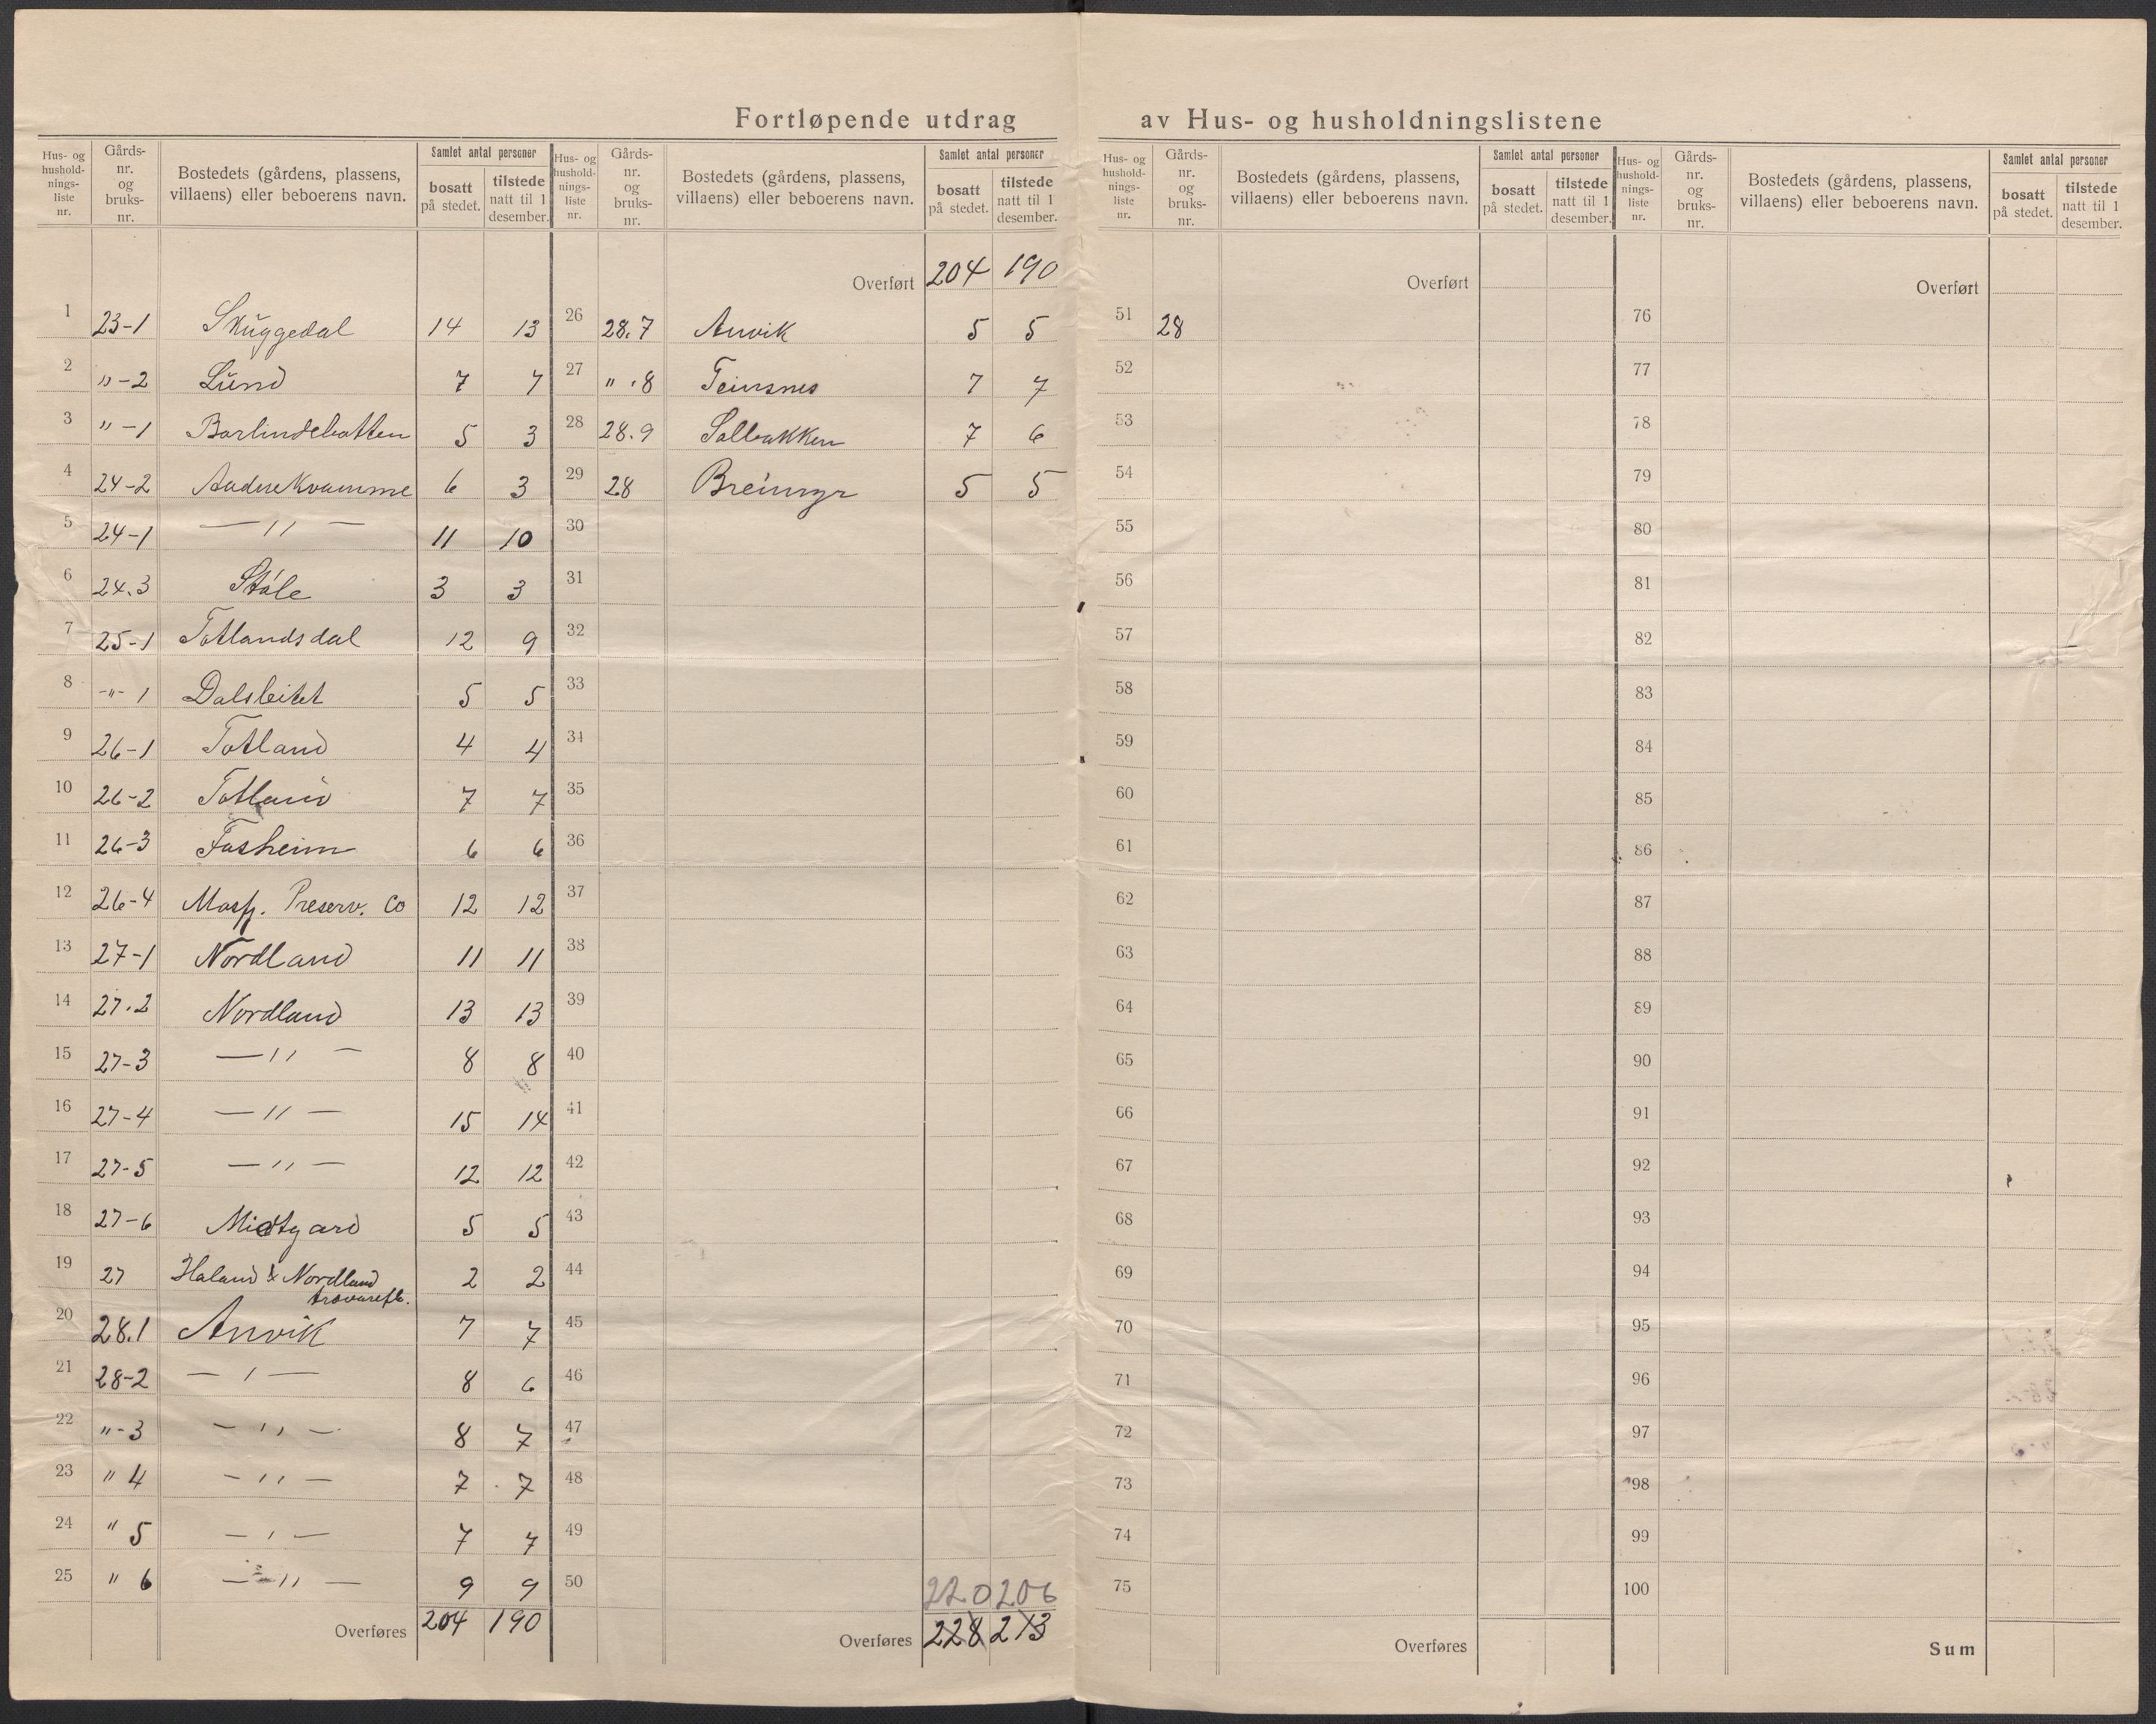 Fortløpende utdrag av Hus- og husholdningslistene
Hus- og hushold-nings-liste nr. | Gårds-nr. og bruks-nr. | Bostedets (gårdens, plassens, villaens) eller beboerens navn. | Samlet antal personer | bosatt på stedet. | tilstede natt til 1 desember.
1 23-1 Skuggedal 14 13
2 " -2 Lund 7 7
3 " -1 Barlindebotten 5 3
4 24-2 AndreKvamme 6 3
5 24-1 — " — 11 10
6 24.3 Støle 3 3
7 25-1 Totlandsdal 12 9
8 -"- 1 Dalsleitet 5 5
9 26-1 Totland 4 4
10 26-2 Totland 7 7
11 26-3 Fasheim 6 6
12 26-4 Masfj. Preserv. Co 12 12
13 27-1 Nordland 11 11
14 27.2 Nordland 13 13
15 27-3 — " — 8 8
16 27-4 — " — 15 14
17 27-5 — " — 12 12
18 27-6 Midtgard 5 5
19 27 Haland & Nordland 2 2
trævarefb.
20 28.1 Anvik 7 7
21 28-2 — " — 8 6
22 " -3 — " — 8 7
23 " 4 — " — 7 7
24 " 5 — " — 7 7
25 " 6 — " — 9 9
Overføres 204 190
Hus- og hushold-nings-liste nr. | Gårds-nr. og bruks-nr. | Bostedets (gårdens, plassens, villaens) eller beboerens navn. | Samlet antal personer | bosatt på stedet. | tilstede natt til 1 desember.
Overført 204 190
26 28.7 Anvik 5 5
27 " .8 Teinsnes 7 7
28 28.9 Solbakken 7 6
29 28 Breimyr 5 5
30
31
32
33
34
35
36
37
38
39
40
41
42
43
44
45
46
47
48
49
50
220 206
Overføres 228 213
Hus- og hushold-nings-liste nr. | Gårds-nr. og bruks-nr. | Bostedets (gårdens, plassens, villaens) eller beboerens navn. | Samlet antal personer | bosatt på stedet. | tilstede natt til 1 desember.
Overført
51 28
52
53
54
55
56
57
58
59
60
61
62
63
64
65
66
67
68
69
70
71
72
73
74
75
Overføres
Hus- og hushold-nings-liste nr. | Gårds-nr. og bruks-nr. | Bostedets (gårdens, plassens, villaens) eller beboerens navn. | Samlet antal personer | bosatt på stedet. | tilstede natt til 1 desember.
Overført
76
77
78
79
80
81
82
83
84
85
86
87
88
89
90
91
92
93
94
95
96
97
98
99
100
Sum